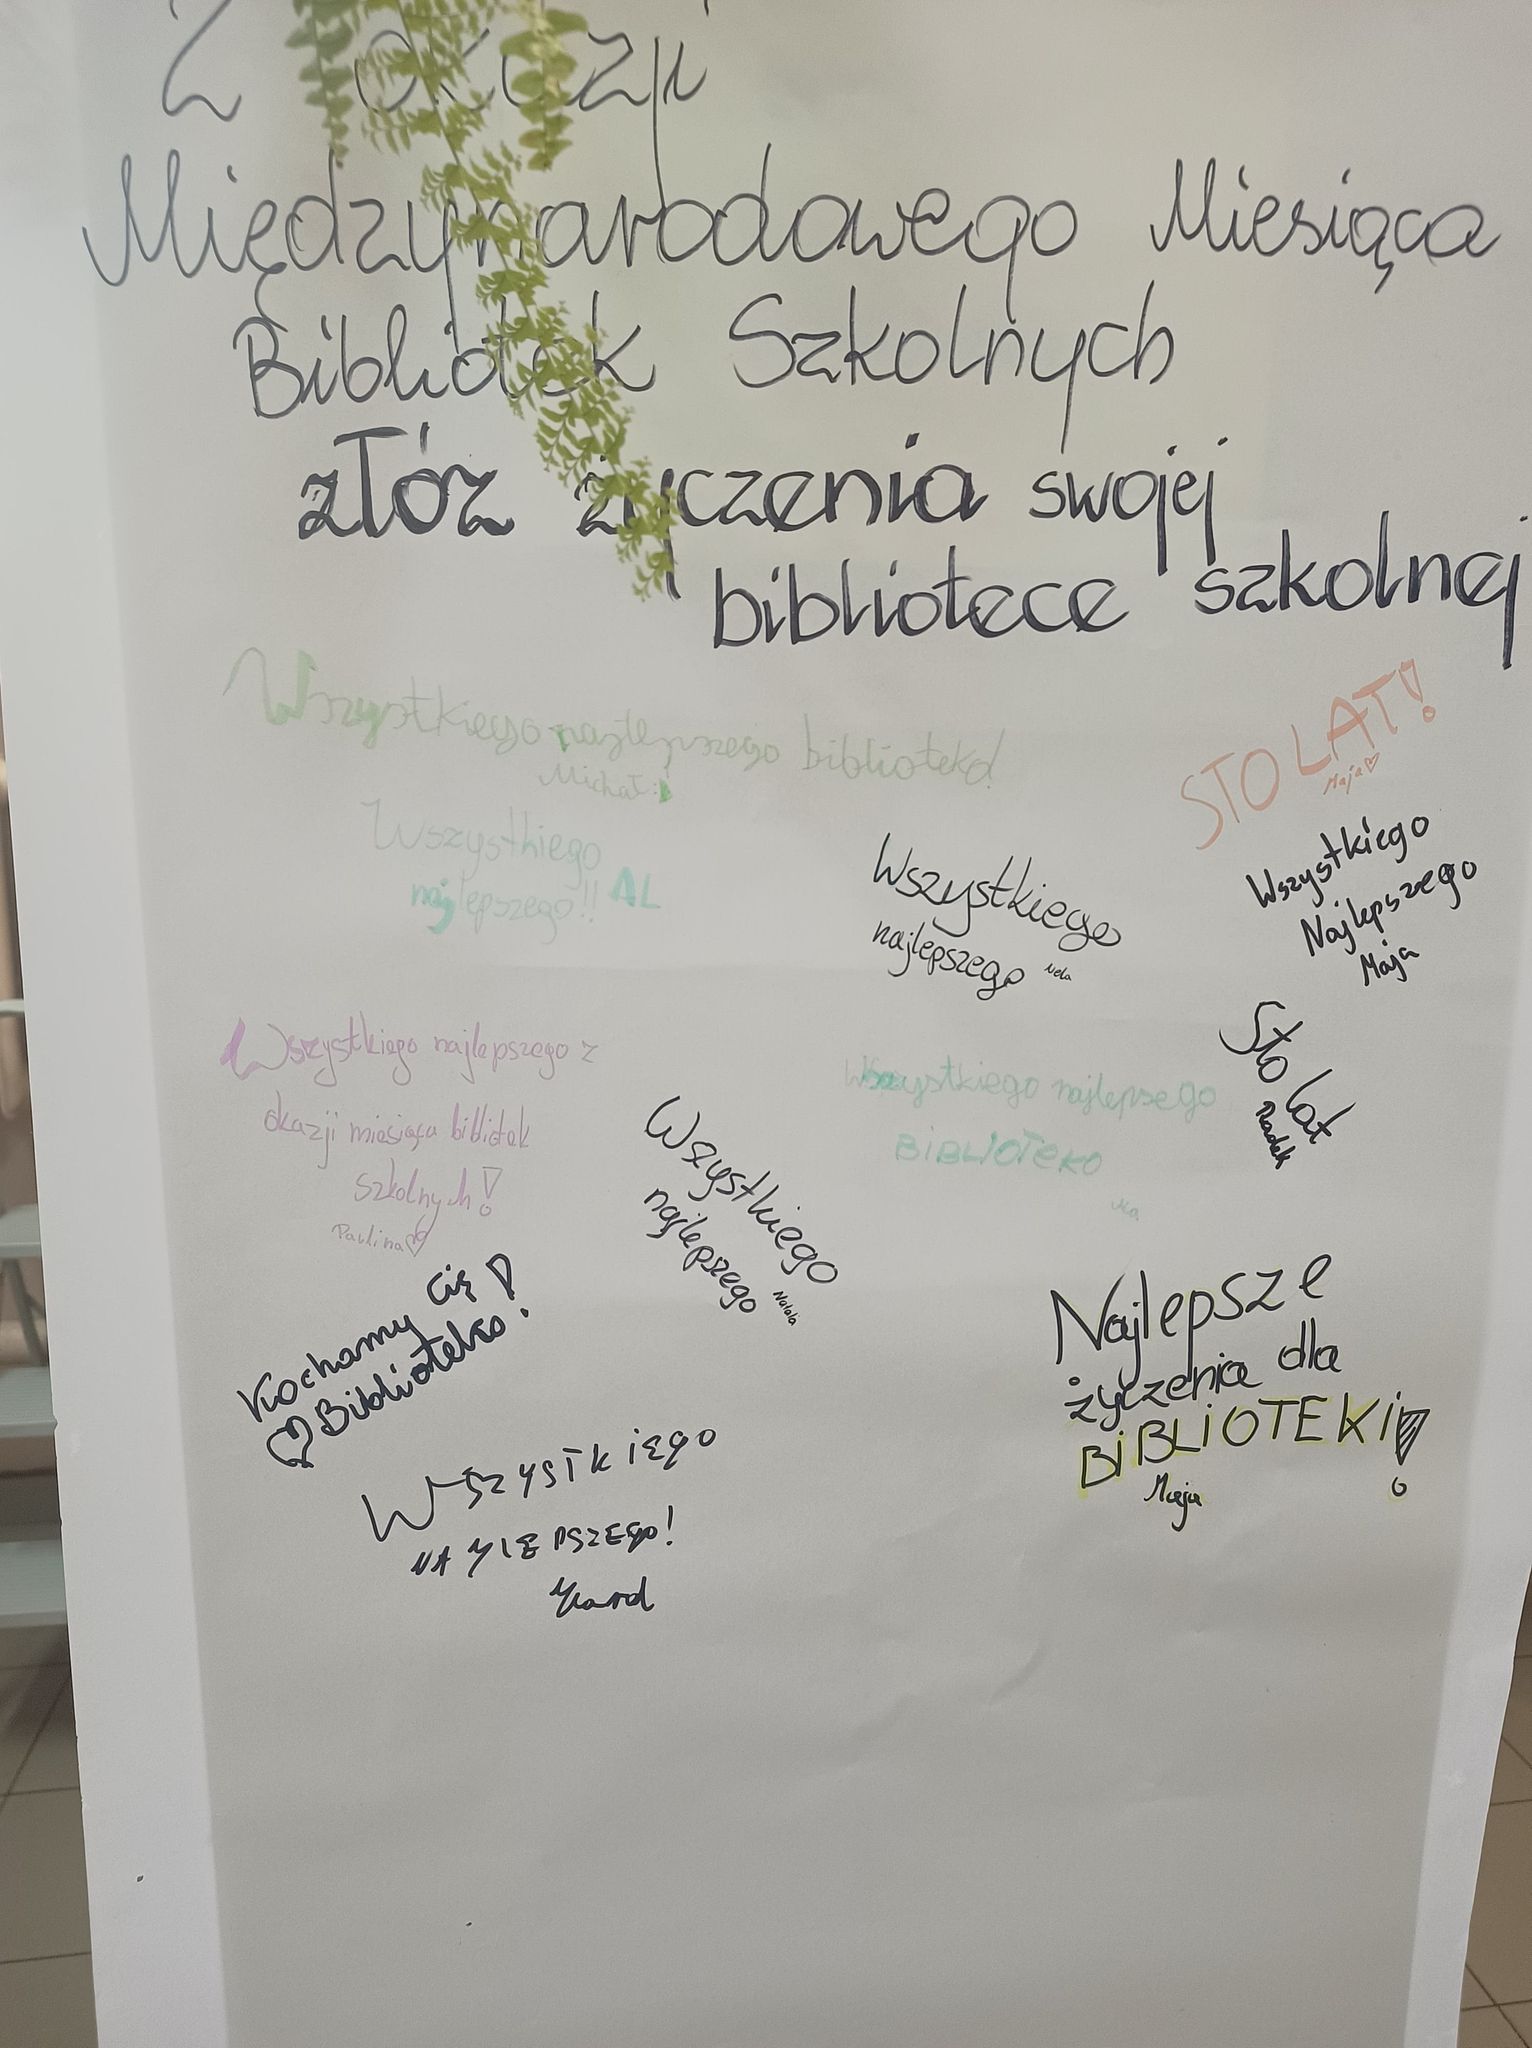 Z okazji
Międzynarodowego Miesiąca
Bibliotek Szkolnych
złóż życzenia swojej
bibliotece szkolnej
Wszystkiego najlepszego biblioteko!
Michał :)
STO LAT!
Maja
Wszystkiego
najlepszego!! AL
Wszystkiego
najlepszego Nela
Wszystkiego
Najlepszego
Maja
Wszystkiego najlepszego z
okazji miesiąca bibliotek
szkolnych!
Paulina
Wszystkiego najlepsego
BiBLIOTEKO
Sto lat
Radek
Wszystkiego
najlepszego Natalia
Kochamy cię
Biblioteko!
Najlepsze
życzenia dla
BiBLiOTEKi!
Maja
Wszystkiego
NAJLEPSZEGO!